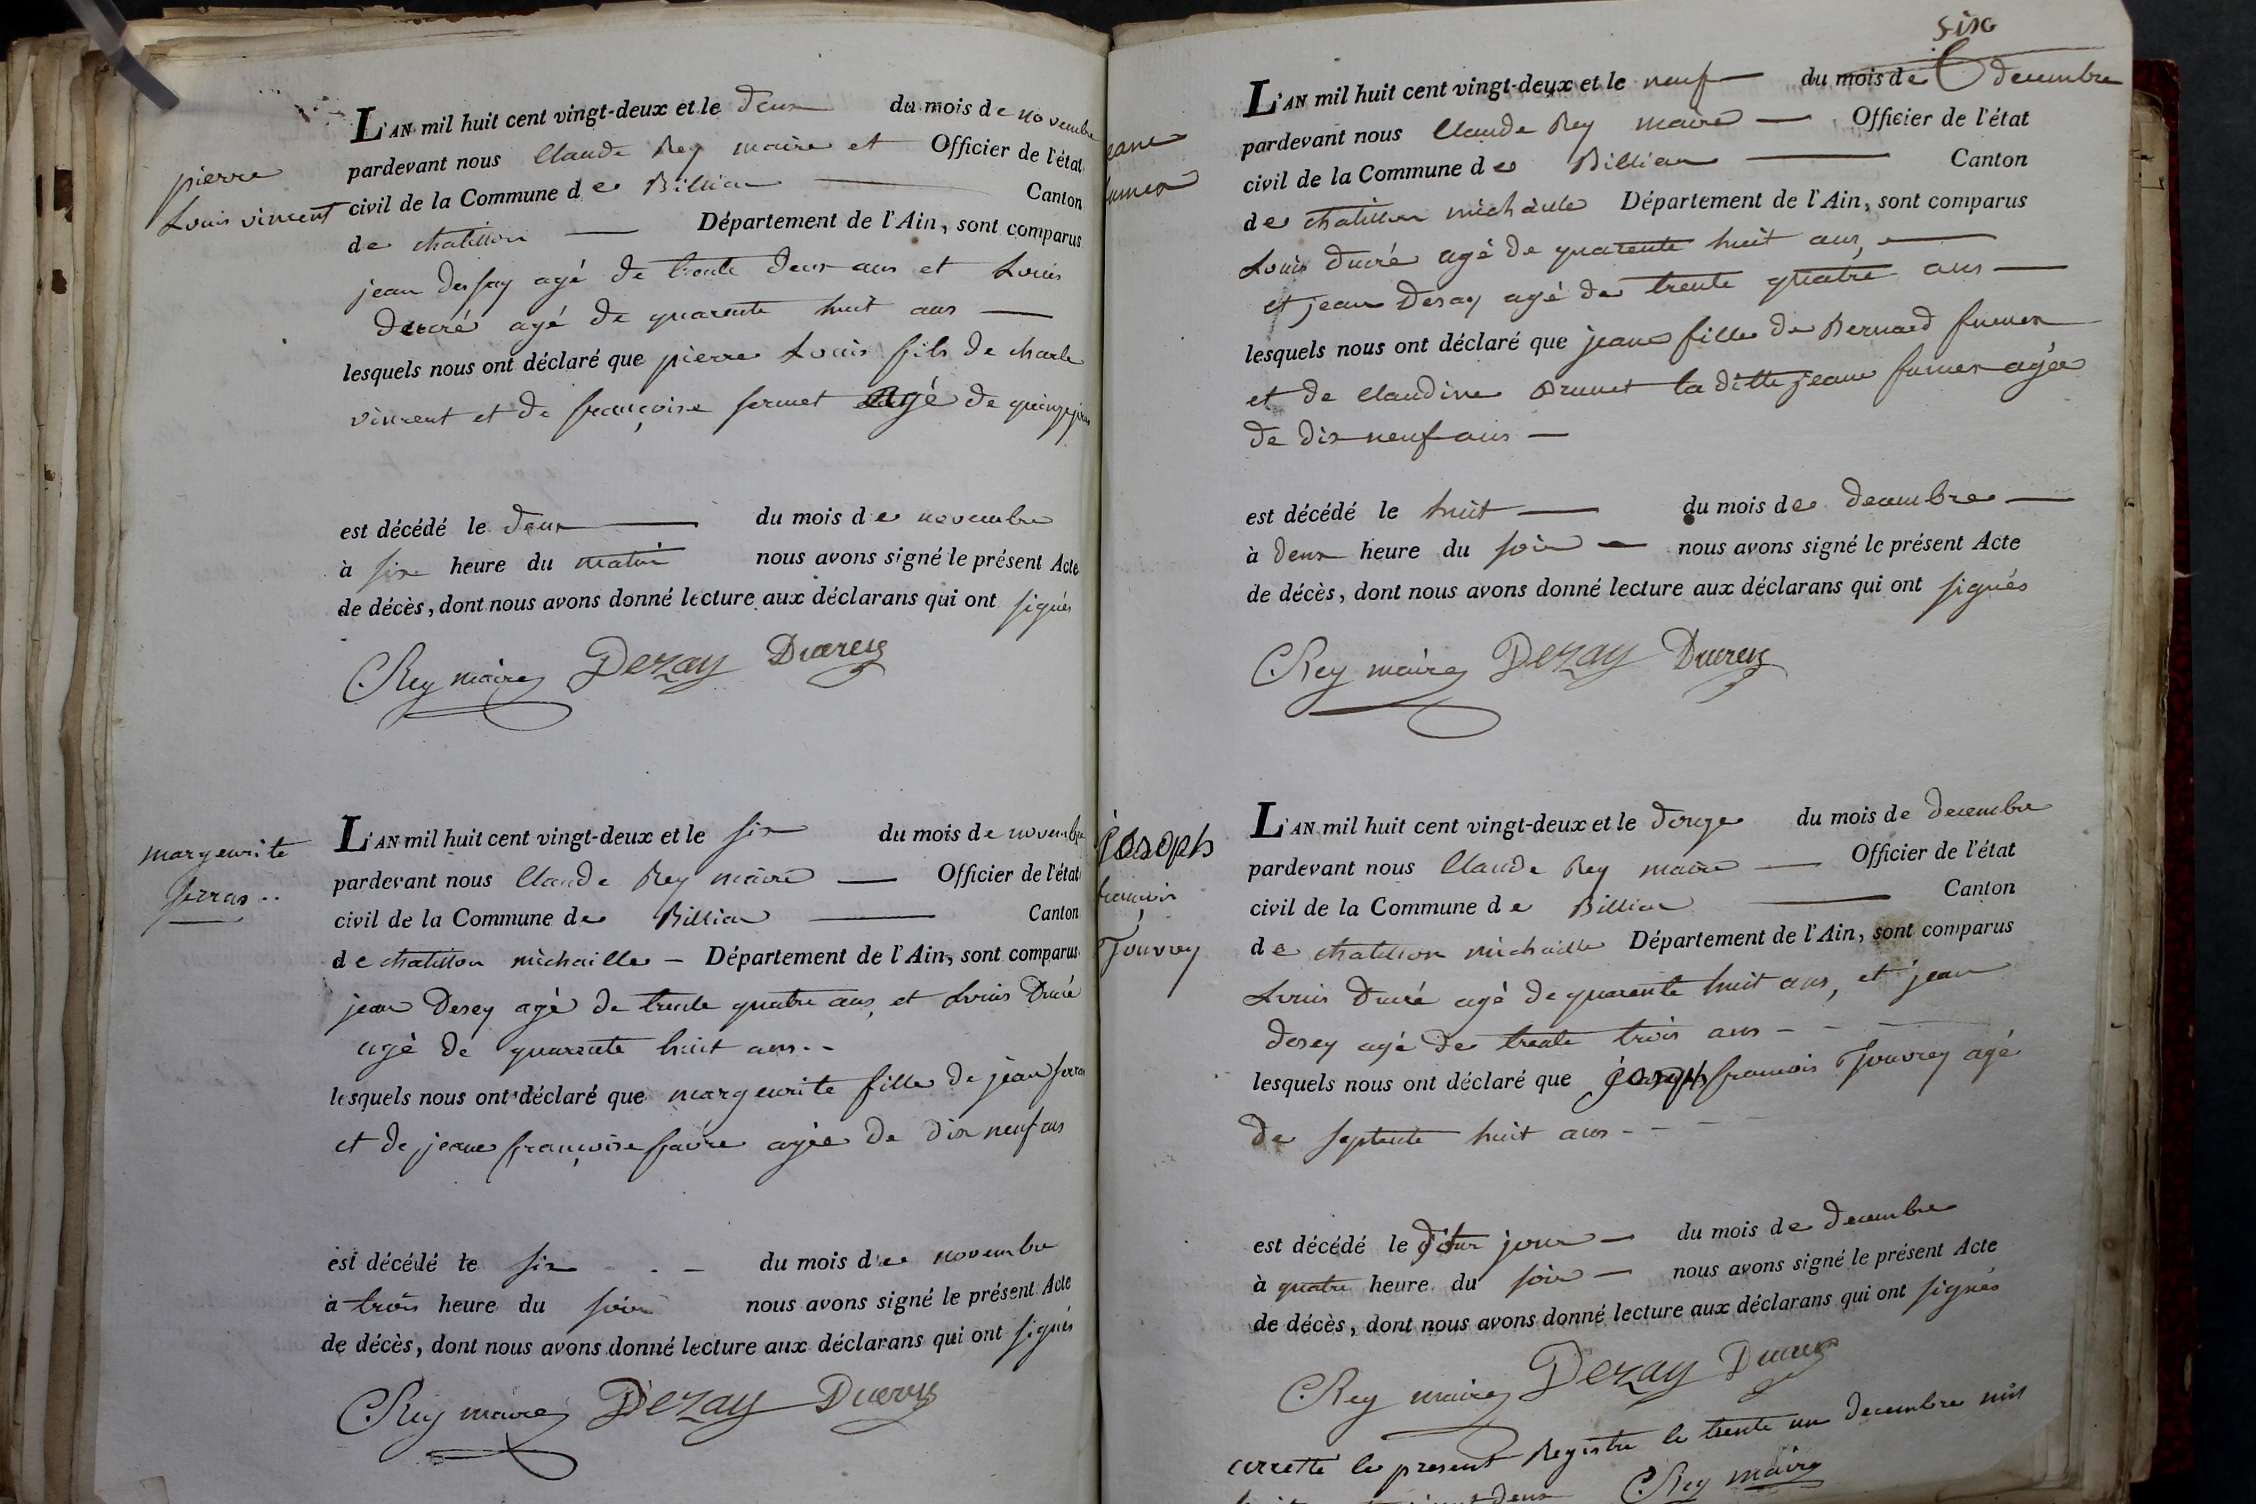 pierre
Louis vincent
L'AN mil huit cent vingt-deux et le deux du mois de novembre
pardevant nous Claude Rey maire et Officier de l'état
civil de la Commune de Billiat Canton
de chatillon Département de l'Ain, sont comparus
jean dessay agé de trente deux ans et Louis
ducré agé de quarente huit ans
lesquels nous ont déclaré que pierre Louis fils de charle
vincent et de françoise fermet agé de quinze jours
est décédé le deux du mois de novembre
à six heure du matin nous avons signé le présent Acte
de décès, dont nous avons donné lecture aux déclarans qui ont signés
CRey maire Dezay Ducrey
marguerite
ferras ..
L'AN mil huit cent vingt-deux et le six du mois de novembre
pardevant nous Claude Rey maire Officier de l'état
civil de la Commune de Billiat Canton
de chatillon michaille Département de l'Ain, sont comparus
jean Desey agé de trente quatre ans, et Louis Ducré
agé de quarente huit ans
lesquels nous ont déclaré que marguerite fille de jean ferras
et de jeane françoise favre agée de dix neuf ans
est décédé le six du mois de novembre
à trois heure du soir nous avons signé le présent Acte
de décès, dont nous avons donné lecture aux déclarans qui ont signés
CRey maire Dezay Ducrey
six
eane
fumex
L'AN mil huit cent vingt-deux et le neuf du mois de decembre
pardevant nous Claude Rey maire Officier de l'état
civil de la Commune de Billiat Canton
de chatillon michaille Département de l'Ain, sont comparus
Louis ducré agé de quarente huit ans,
et jean Desay agé de trente quatre ans
lesquels nous ont déclaré que jeane fille de Bernard fumex
et de Claudine Brunet la ditte jeane fumex agée
de dix neuf ans
est décédé le huit du mois de decembre
à deux heure du soir nous avons signé le présent Acte
de décès, dont nous avons donné lecture aux déclarans qui ont signés
CRey maire Dezay Ducrey
joseph
francois
Jouvrey
L'AN mil huit cent vingt-deux et le douze du mois de decembre
pardevant nous Claude Rey maire Officier de l'état
civil de la Commune de Billiat Canton
de chatillon michaille Département de l'Ain, sont comparus
Louis Ducré agé de quarente huit ans, et jean
desey agé de trente trois ans
lesquels nous ont déclaré que joseph francois Jouvrey agé
de septente huit ans
est décédé le jour du mois de decembre
à quatre heure du soir nous avons signé le présent Acte
de décès, dont nous avons donné lecture aux déclarans qui ont signés
CRey maire Dezay Ducrey
arretté le present Registre le trente un decembre mil
deux CRey maire